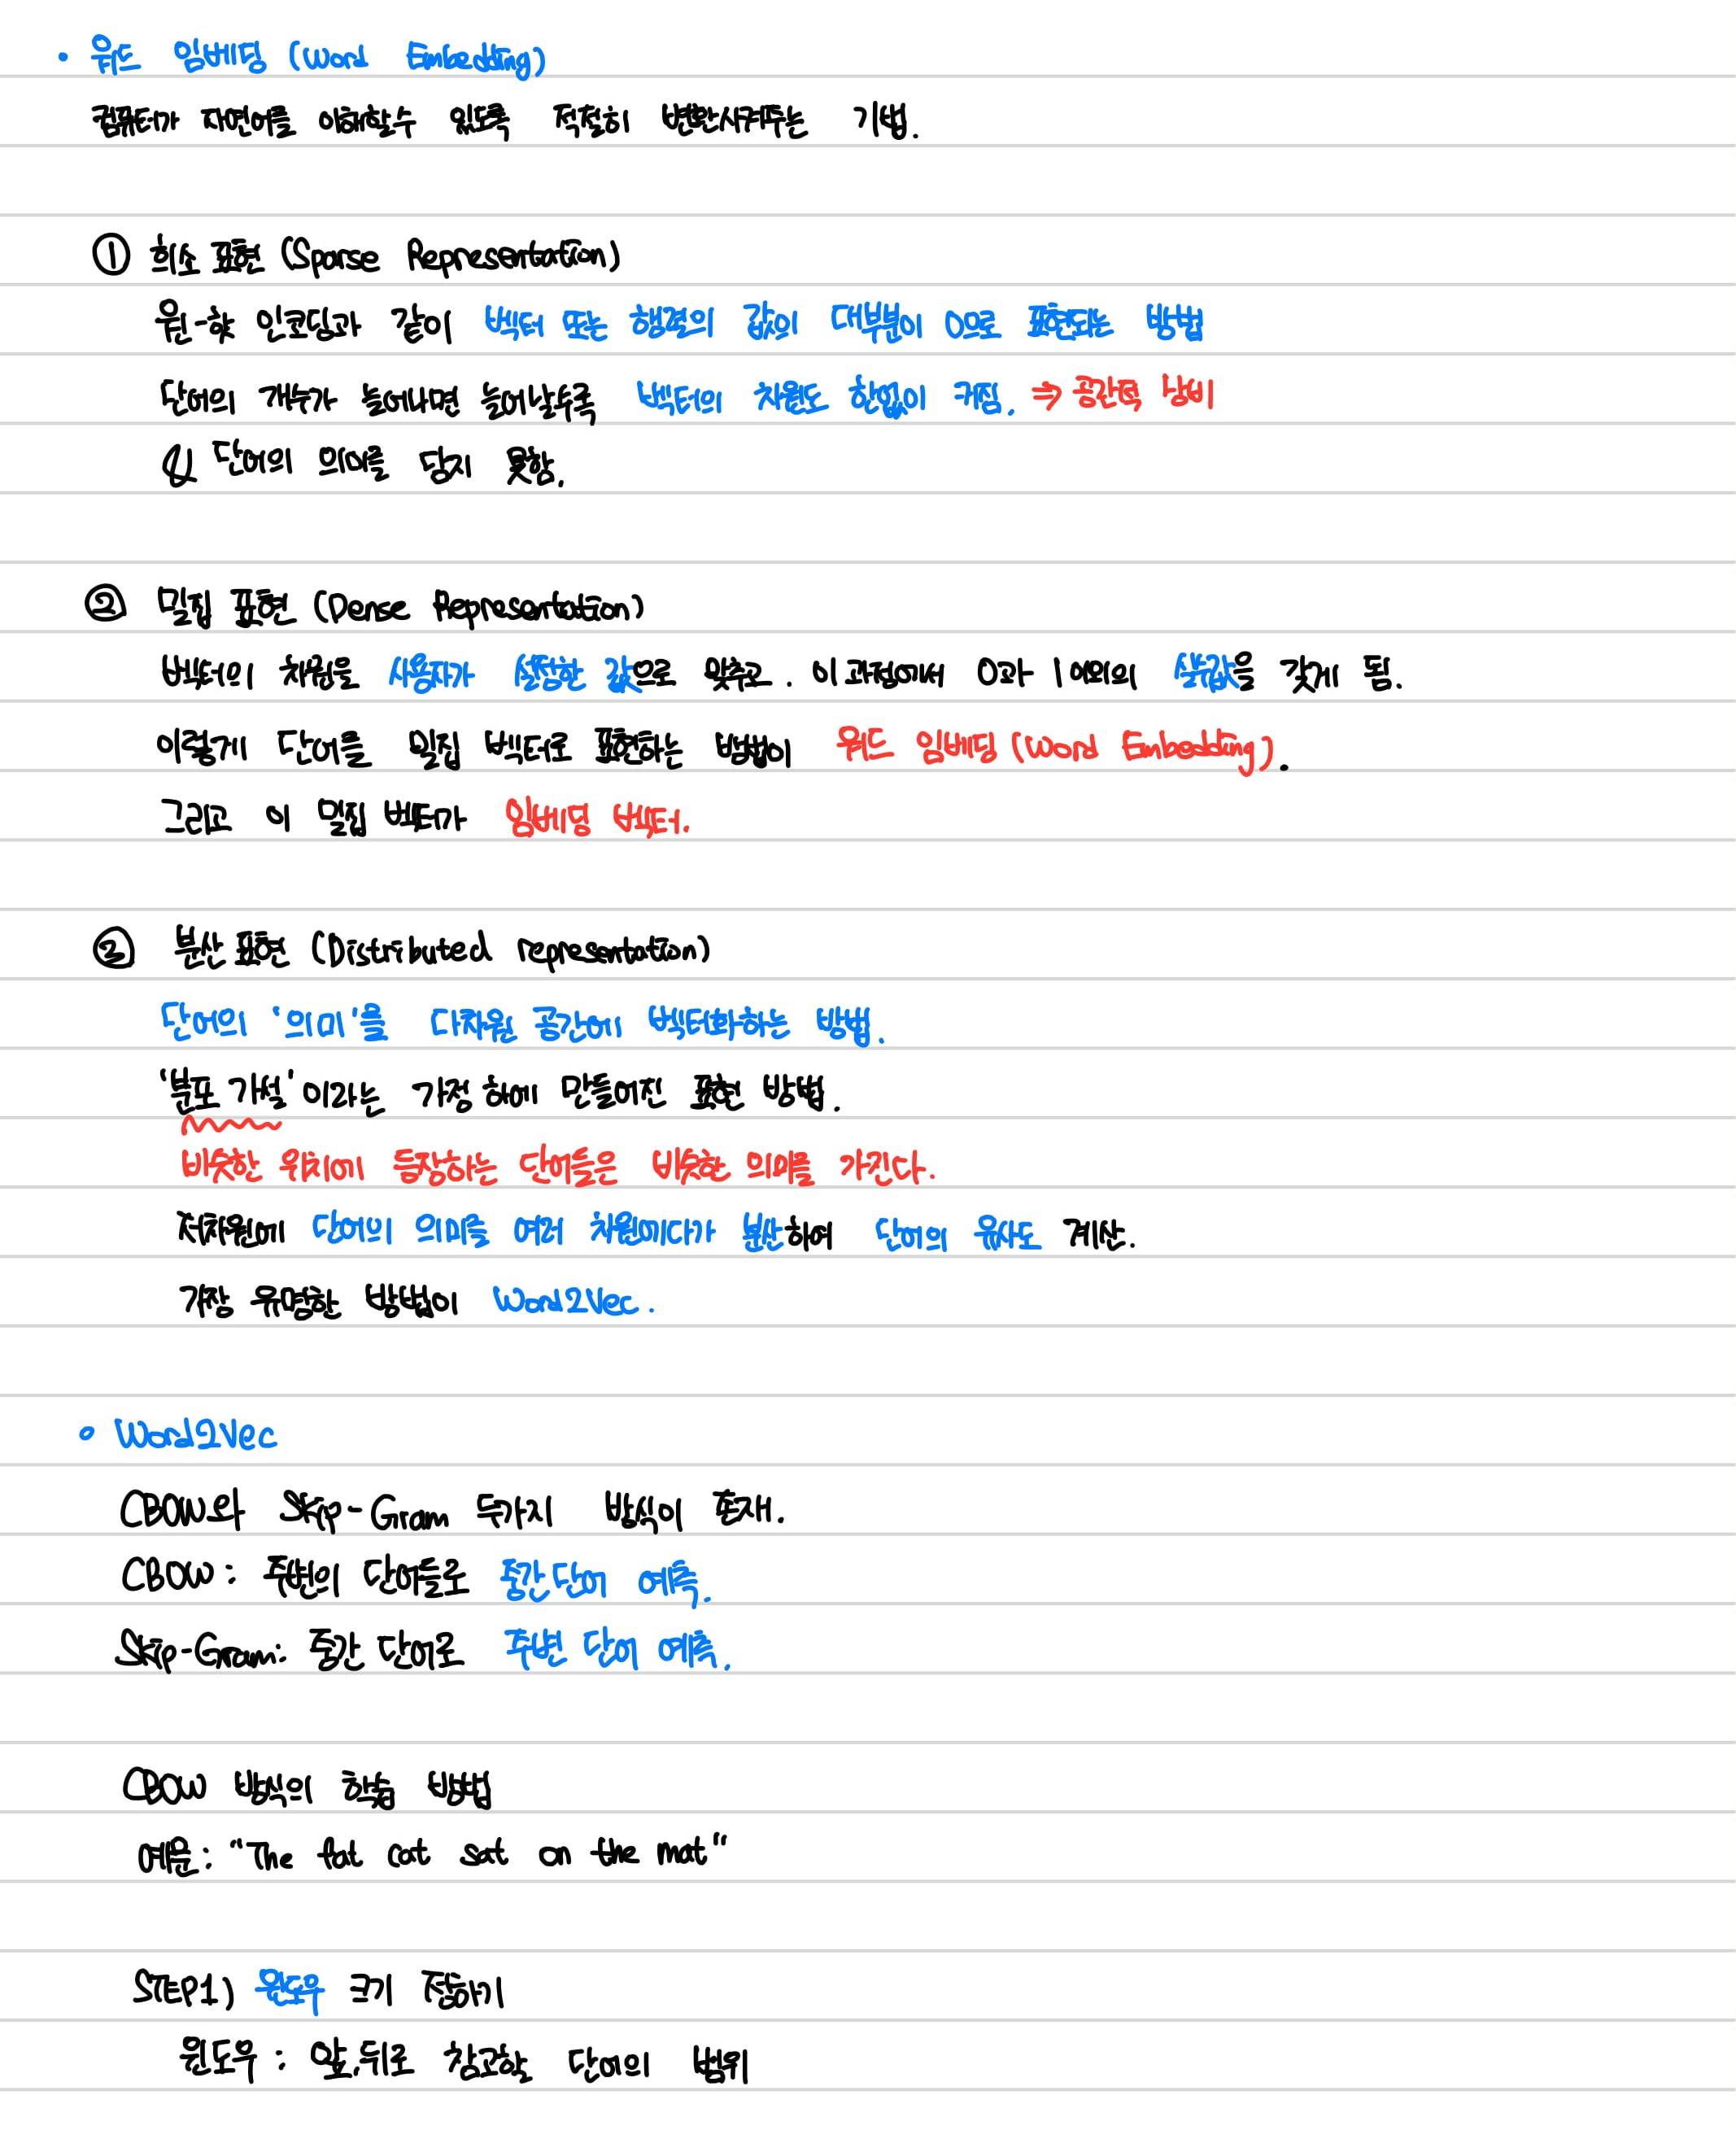 • 워드 임베딩 (Word Embedding)
컴퓨터가 자연어를 이해할수 있도록 적절히 변환시켜주는 기법.
① 희소 표현 (Sparse Representation)
원-핫 인코딩과 같이 벡터 또는 행렬의 값의 대부분이 0으로 표현되는 방법
단어의 개수가 늘어나면 늘어날수록 벡터의 차원도 한없이 커짐. ⇒ 공간적 낭비
& 단어의 의미를 담지 못함.
② 밀집 표현 (Dense Representation)
벡터의 차원을 사용자가 설정한 값으로 맞추고. 이 과정에서 0과 1 이외의 실수값을 갖게 됨.
이렇게 단어를 밀집 벡터로 표현하는 방법이 워드 임베딩 (Word Embedding).
그리고 이 밀집 벡터가 임베딩 벡터.
③ 분산 표현 (Distributed representation)
단어의 '의미'를 다차원 공간에 벡터화하는 방법.
'분포 가설'이라는 가정 하에 만들어진 표현 방법.
비슷한 위치에 등장하는 단어들은 비슷한 의미를 가진다.
저차원에 단어의 의미를 여러 차원에다가 분산하여 단어의 유사도 계산.
가장 유명한 방법이 Word2Vec.
• Word2Vec
CBOW와 Skip-Gram 두가지 방식이 존재.
CBOW: 주변의 단어들로 중간 단어 예측.
Skip-Gram: 중간 단어로 주변 단어 예측.
CBOW 방식의 학습 방법
예문: "The fat cat sat on the mat"
STEP1) 윈도우 크기 정하기
윈도우 : 앞,뒤로 참고할 단어의 범위